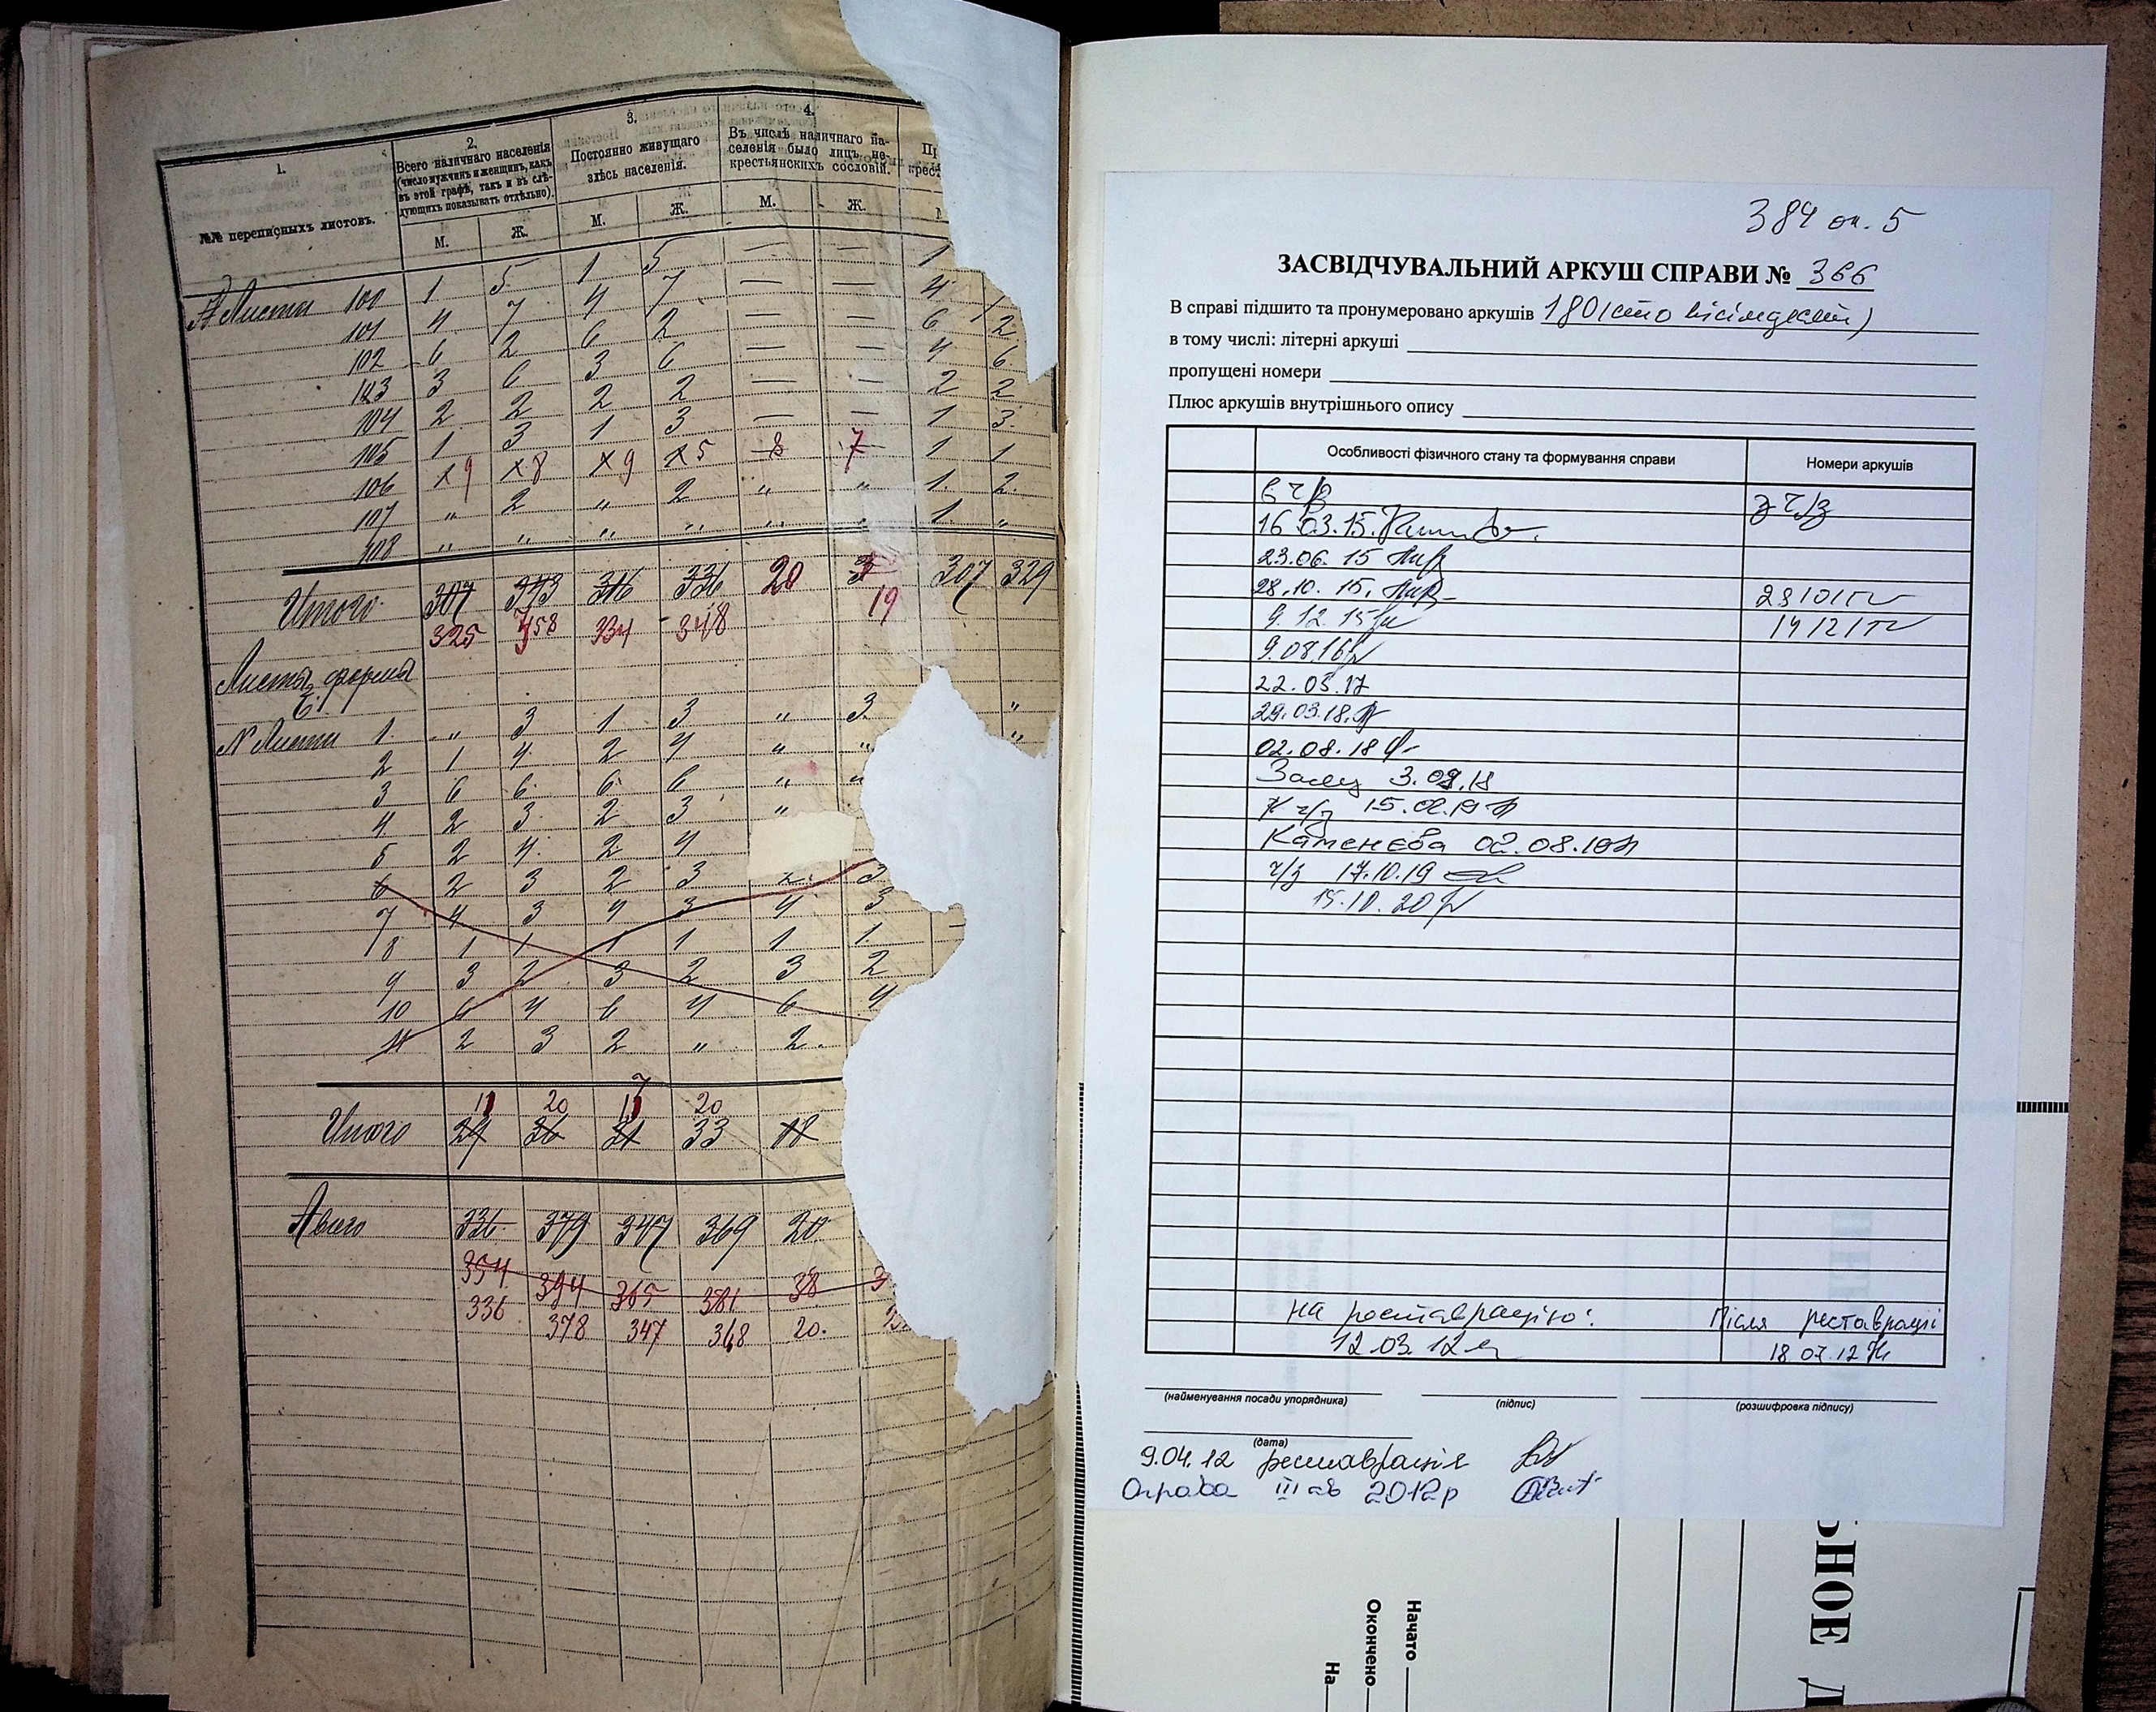 1.
№№ переписныхъ листовъ.
2.
Всего наличнаго населенія
(число мужчинъ и женщинъ, какъ
въ этой графѣ, такъ и въ слѣ-
дующихъ показывать отдѣльно).
3.
Постоянно живущаго
здѣсь населенія.
4.
Въ числѣ наличнаго на-
селенія было лицъ не-
крестьянскихъ сословій.
М. Ж. М. Ж. М. Ж.
Листи 100 1 5 1 5 — — 1
101 4 7 4 7 — — 4 1
102 6 2 6 2 — — 6 2
103 3 6 3 6 — — 4 6
104 2 2 2 2 — — 2 2
105 1 3 1 3 — — 1 3.
106 x 9 x 8 x 9 x 5 8 7 1 1
107 „ 2 „ 2 „ „ 1. 2.
108 „ „ „ „ „ „ 1. „
Итого 307 343 316 336 20 307 329
325 358 334 348 19
Листы формы
Б.
№ Листи 1. „ 3 1 3 „ 3. „
2 1 4 2 4 „ „ „
3 6 6. 6. 6 „ „
4 2 3. 2 3 „
5 2 4. 2 4
6 2 3 2 3 2. 3
7 4 3 4 3 4 3
8 1 1 1 1 1 1.
9 3 2 3 2 3 2
10 6 4 6 4 6 4
11 2 3 2 „ 2.
11 20 13 20
Итого 29 36 31 33 18
Авсего 336 379 347 369 20
354 394 365 381 38
336 378 347 368 20.
384 оп. 5
ЗАСВІДЧУВАЛЬНИЙ АРКУШ СПРАВИ № 366
В справі підшито та пронумеровано аркушів 180 (сто вісімдесят)
в тому числі: літерні аркуші
пропущені номери
Плюс аркушів внутрішнього опису
Особливості фізичного стану та формування справи Номери аркушів
в ч/з з ч/з
16.03.15.
23.06.15
28.10.15. 28/10/15
9.12.15 14/12/15
9.08.16
22.05.17
29.03.18.
02.08.18
3.09.18
К ч/з 15.02.19
Каменєва 02.08.19
ч/з 17.10.19
15.10.20
на реставрацію: Після реставрації
12.03.12 18.07.12
(найменування посади упорядника) (підпис) (розшифровка підпису)
(дата)
9.04.12 реставрація
Оправа III кв 2012р
Начато
Окончено
На
ЬНОЕ Д